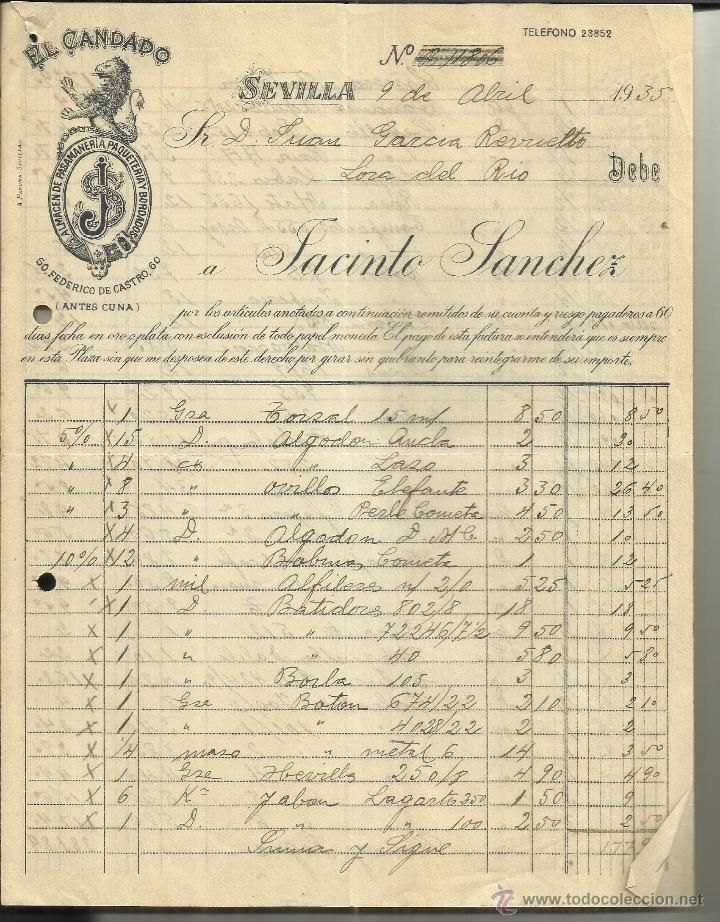 TELEFONO 23852
EL CANDADO
ALMACEN DE PASAMANERIA, PAQUETERIA Y BORDADOS
JS
60, FEDERICO DE CASTRO, 60
(ANTES CUNA)
Nº
SEVILLA 9 de Abril 1935
Sr. D. Juan Garcia Revuelto
Lora del Rio Debe
a Jacinto Sanchez
por los artículos anotados a continuación remitidos de su cuenta y riesgo pagaderos a 60
días fecha en oro o plata con esclusión de todo papel moneda. El pago de esta factura se entenderá que es siempre
en esta Plaza sin que me desposea de este derecho por girar sin quebranto para reintegrarme de su importe.
x 1 Gsa Torsal 15 m/ 8 50 8 50
5% x 15 D. Algodon Ancla 2 30
" x 4 " Lazo 3 12
" x 8 " ovillos Elefante 3 30 26 40
" x 3 " Perle Cometa 4 50 13 50
x 4 D. Algodon D.M.C. 2 50 10
10% x 12 " Bobinas Cometa 1 12
x 1 mil Alfileres n/ 2/0 5 25 5 25
x 1 D Batidores 802/8 18 18
x 1 " " 72246/7½ 9 50 9 50
x 1 " " 40 5 80 5 80
x 1 Borla 105 3 3
x 1 Gse Boton 674/22 2 10 2 10
x 1 " " 4028/22 2 2
x 1/4 maso " metal 6 14 3 50
x 1 Gse Hevilla 250/8 4 90 4 90
x 6 Ks Jabon Lagarto 250 1 50 9
x 1 D. " " 100 2 50 2 50
Suma y Sigue
www.todocoleccion.net